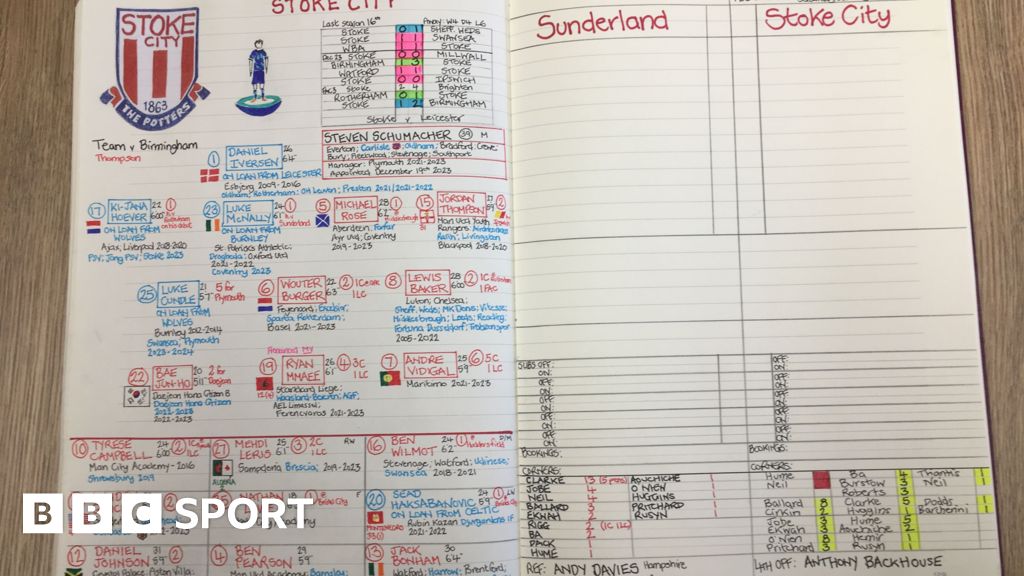 STOKE CITY
STOKE
CITY
1863
THE POTTERS
Last season 16th
Andy: W4 D4 L6
STOKE 0 1 SHEFF. WEDS
STOKE 1 1 SWANSEA
WBA 1 1 STOKE
Dec 23 STOKE 0 0 MILLWALL
BIRMINGHAM 1 3 STOKE
WATFORD 1 1 STOKE
STOKE 0 0 IPSWICH
STOKE 2 4 Brighton
ROTHERHAM 0 1 STOKE
STOKE 1 2 BIRMINGHAM
Stoke v Leicester
Team v Birmingham
Thompson
STEVEN SCHUMACHER 39 M
Everton; Carlisle; Oldham; Bradford; Crewe
Bury; Fleetwood; Stevenage; Southport
Manager: Plymouth 2021-2023
Appointed December 19th 2023
1 DANIEL IVERSEN 26 6'4"
ON LOAN FROM LEICESTER
Esbjerg 2009-2016
Oldham; Rotherham; OH Leuven; Preston 2021/2021-2022
17 KI-JANA HOEVER 22 6'00" 1
ON LOAN FROM WOLVES
Ajax, Liverpool 2018-2020
PSV; Jong PSV; Stoke 2023
23 LUKE McNALLY 24 6'1 1
Sunderland
ON LOAN FROM BURNLEY
St. Patrick's Athletic;
Drogheda; Oxford Utd
2021-2022
Coventry 2023
5 MICHAEL ROSE 28 6'2" 1
Aberdeen; Forfar
Ayr Utd; Coventry
2019-2023
15 JORDAN THOMPSON 27 5'9 2
Man Utd Youth
Rangers; Airdrieonians
Raith; Livingston
Blackpool 2018-2020
25 LUKE CUNDLE 21 5'7 5 for Plymouth
ON LOAN FROM WOLVES
Burnley 2012-2014
Swansea, Plymouth
2023-2024
6 WOUTER BURGER 22 6'3 2 1C 1LC
Feyenoord; Excelsior;
Sparta Rotterdam;
Basel 2021-2023
8 LEWIS BAKER 28 6'00 2 1C 1FAC
Luton; Chelsea;
Sheff. Weds; MK Dons; Vitesse;
Middlesbrough; Leeds; Reading;
Fortuna Dusseldorf; Trabzonspor
2005-2022
22 BAE JUN-HO 20 5'11 2 for Daejeon
Daejeon Hana Citizen B
Daejeon Hana Citizen
2022-2023
2022-2023
19 RYAN MMAEE 26 6'1 4 3C 1LC
Standard Liege;
Waasland-Beveren; AGF;
AEL Limassol;
Ferencvaros 2021-2023
7 ANDRE VIDIGAL 25 5'9 6 5C 1LC
Maritimo 2021-2023
10 TYRESE CAMPBELL 24 6'00 2
Man City Academy-2016
Shrewsbury 2019
27 MEHDI LERIS 25 6'1 3 2C 1LC RW
ALGERIA
Sampdoria Brescia; 2019-2023
16 BEN WILMOT 24 6'2 1 Huddersfield D/M
Stevenage, Watford; Udinese;
Swansea 2018-2021
NATHAN
Bristol City
F
20 SEAD HAKSABANOVIC 24 5'9 1
ON LOAN FROM CELTIC
MONTENEGRO
Rubin Kazan Djurgardens IF
2021-2022
12 DANIEL JOHNSON 31 5'9" 2
Crystal Palace; Aston Villa;
4 BEN PEARSON 29 5'9"
Man Utd Academy; Barnsley;
13 JACK BONHAM 30 6'4"
Watford; Harrow; Brentford;
BBC SPORT
Sunderland
Stoke City
SUBS OFF:
ON:
OFF:
ON:
OFF:
ON:
OFF:
ON:
OFF:
ON:
OFF:
ON:
OFF:
ON:
OFF:
ON:
OFF:
ON:
OFF:
ON:
BOOKINGS:
BOOKINGS:
CORNERS:
CORNERS:
CLARKE 13 (5 pens) AOUCHICHE 1
JOBE 4 O'NIEN 1
NEIL 4 HUGGINS 1
BALLARD 3 PRITCHARD 1
EKWAH 3 RUSYN 1
RIGG 2 (1C 1LC)
BA 2
DACK 1
HUME 1
Hume
Neil
Ba 4
Burstow 3
Roberts 3
Neil 1
Ballard 8 Clarke 5 Dodds 1
Cirkin 2 Huggins 1
Jobe 3 Hume 5
Ekwah 3 Aouchiche 2
O'Nien 8 Hemir 1
Pritchard 3 Rusyn 1
REF: ANDY DAVIES Hampshire
4TH OFF: ANTHONY BACKHOUSE